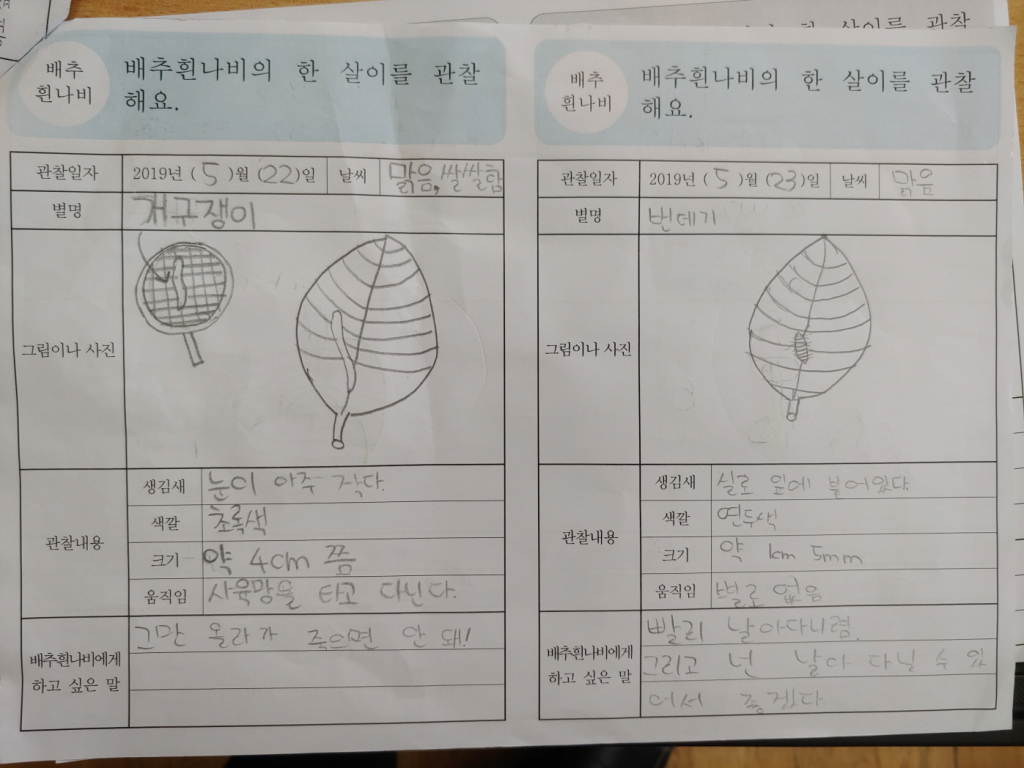 살이를 관찰
배추
흰나비
배추흰나비의 한 살이를 관찰
해요.
관찰일자
2019년 ( 5 )월 (22)일
날씨
맑음, 쌀쌀함
별명
개구쟁이
그림이나 사진
관찰내용
생김새
눈이 아주 작다.
색깔
초록색
크기
약 4cm 쯤
움직임
사육망을 타고 다닌다.
배추흰나비에게
하고 싶은 말
그만 올라가 죽으면 안 돼!
배추
흰나비
배추흰나비의 한 살이를 관찰
해요.
관찰일자
2019년 ( 5 )월 (23)일
날씨
맑음
별명
번데기
그림이나 사진
관찰내용
생김새
실로 잎에 붙어있다.
색깔
연두색
크기
약 1cm 5mm
움직임
별로 없음
배추흰나비에게
하고 싶은 말
빨리 날아다니렴.
그리고 넌 날아 다닐 수 있
어서 좋겠다